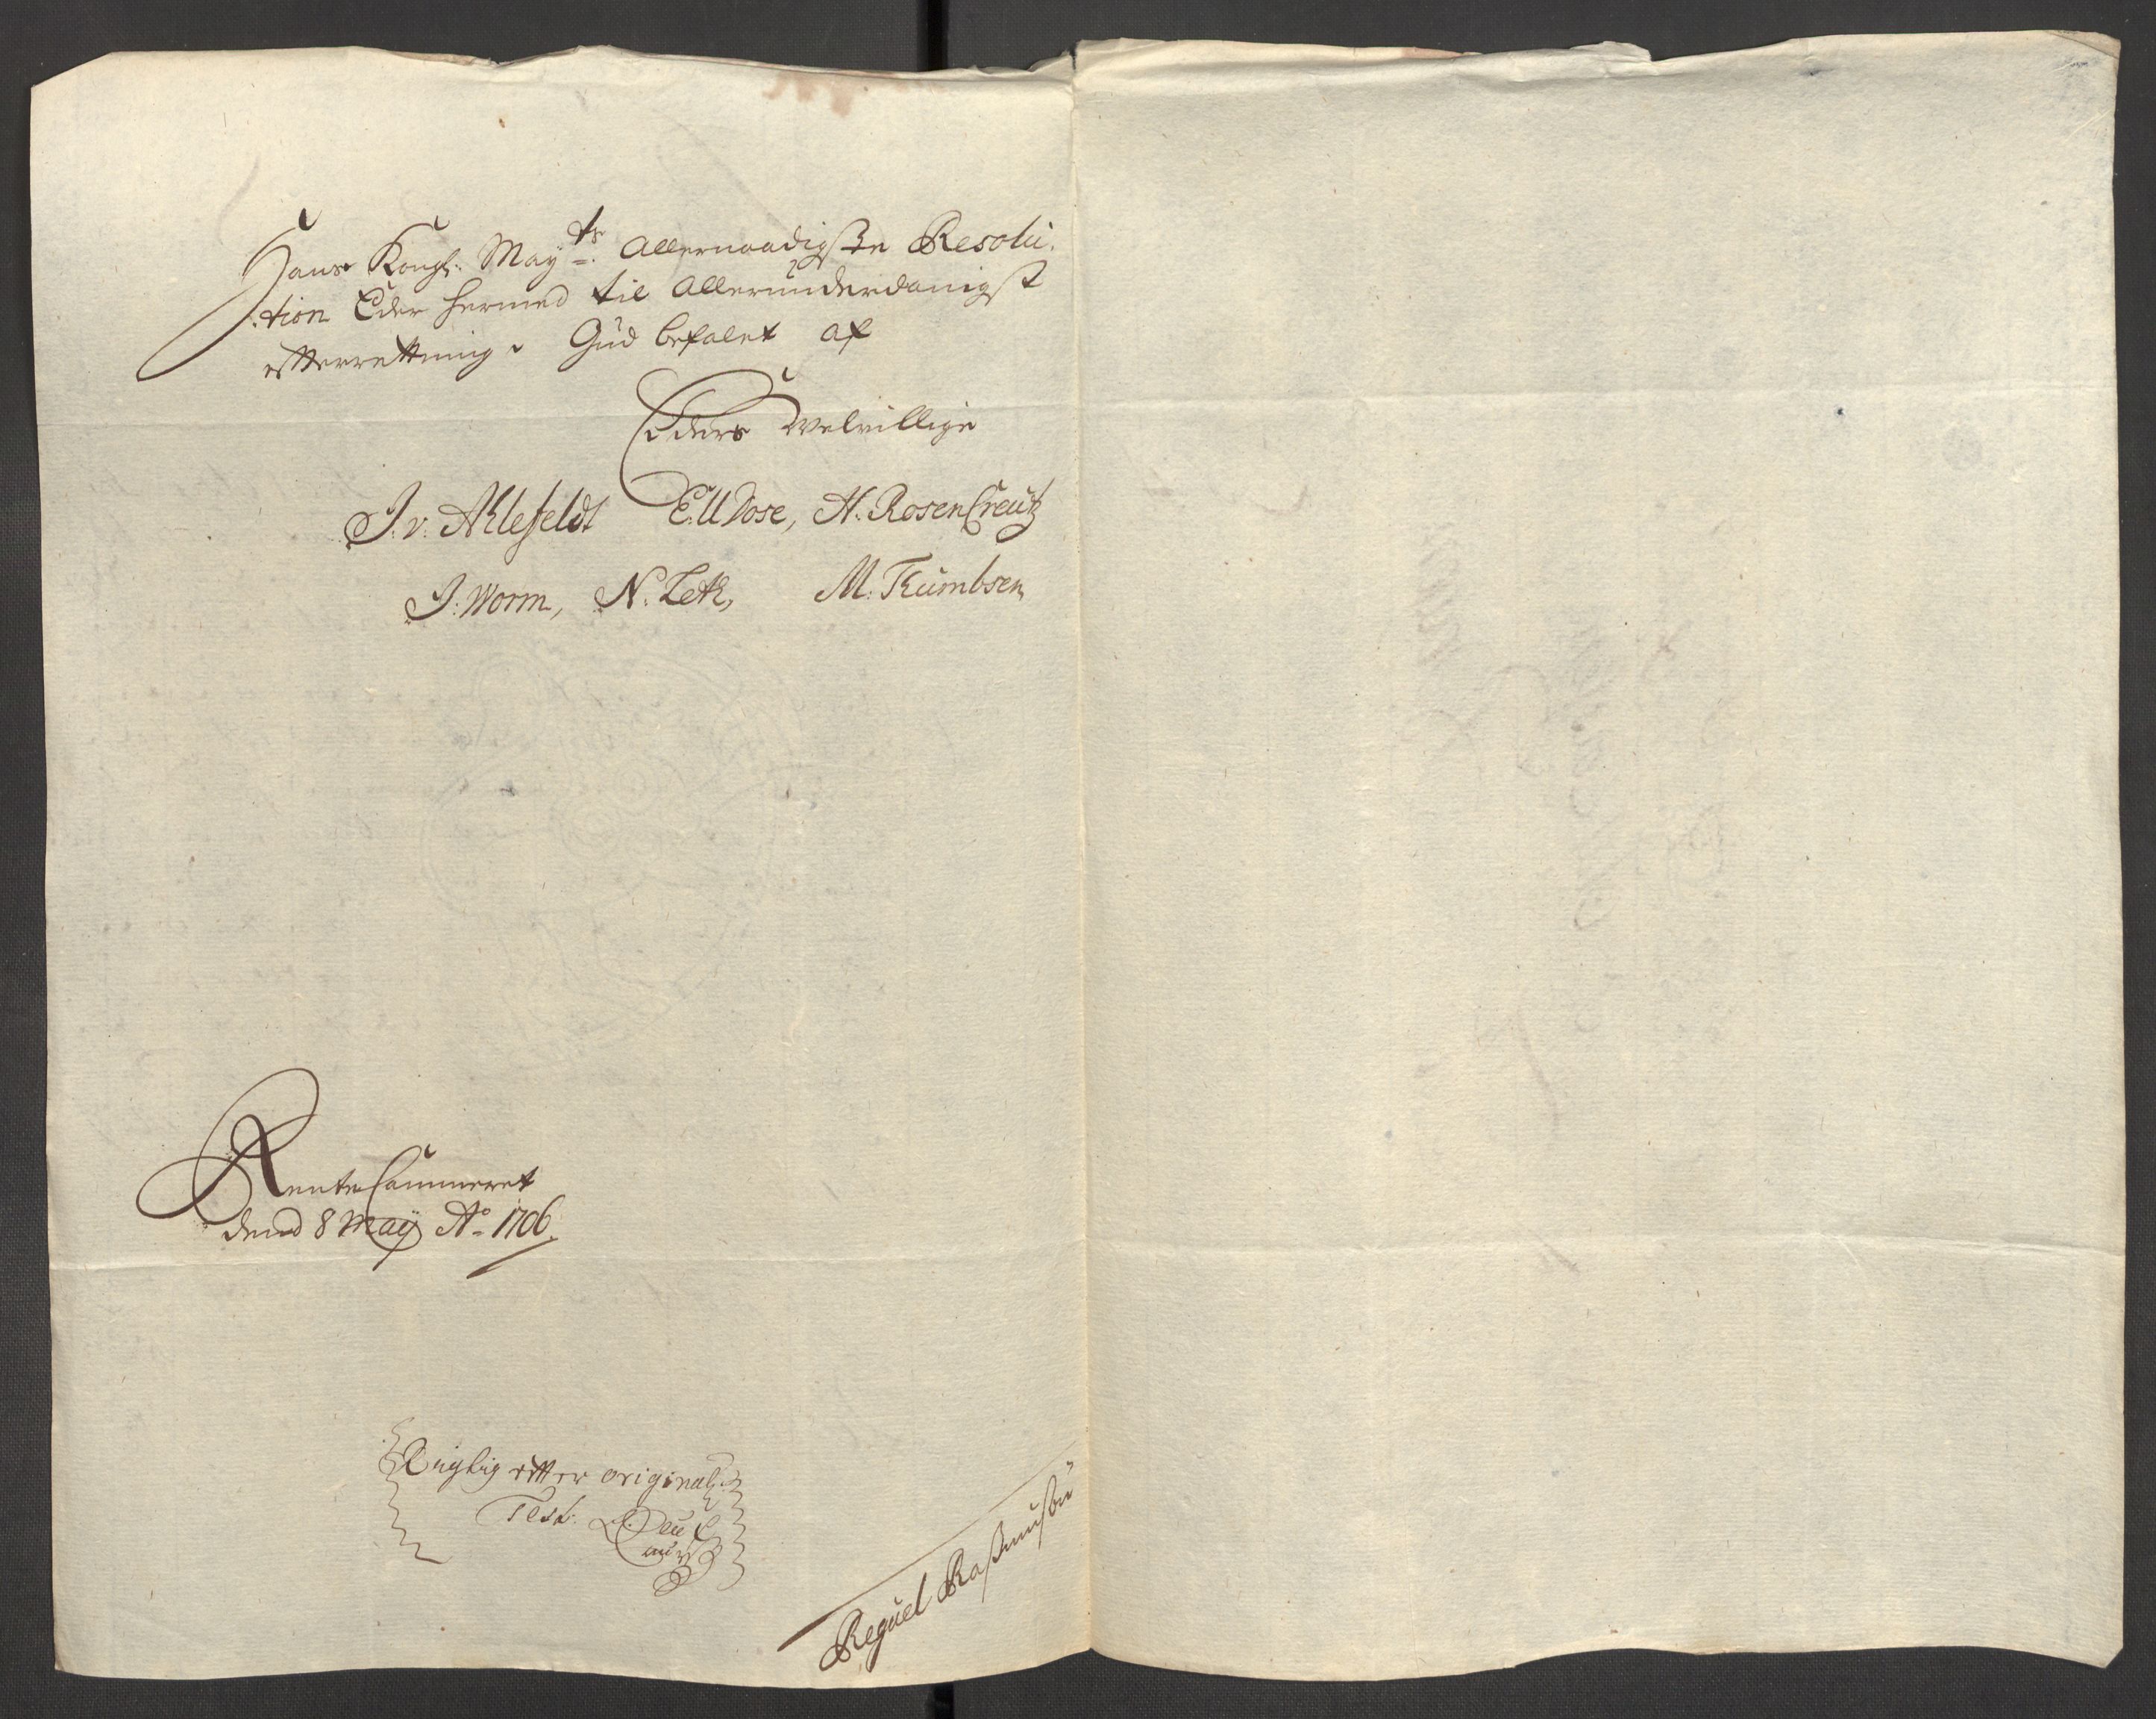 Hans Kongl: May:ts Allernaadigste Resolu:
:tion Eder hermed til Allerunderdanigst
efterrettning. Gud befalet af
Eders Welvillige
J. v. Ahlefeldt E. U Dose, H. RosenCreutz
J: Worm, N. Lett, M. Thumbsen
RenteCammeret
dend 8 May Ao 1706.
Rigtig efter original
Test.
Reguel Rasmusøn